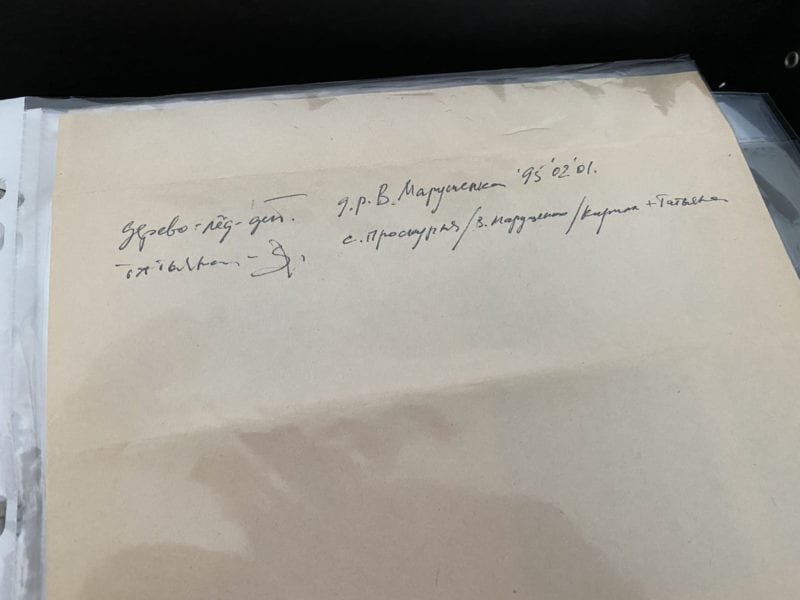 дерево-лёд-дет.
Татьяна -
д.р. В. Марущенка '95'02'01.
с. Проскурня / В. Марущенко / Кирилл + Татьяна